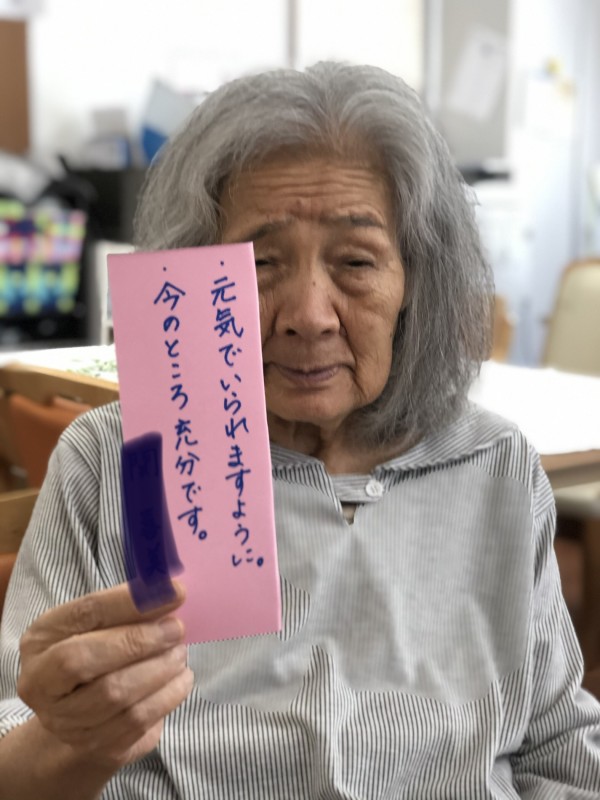 ・元気でいられますように。
・今のところ充分です。